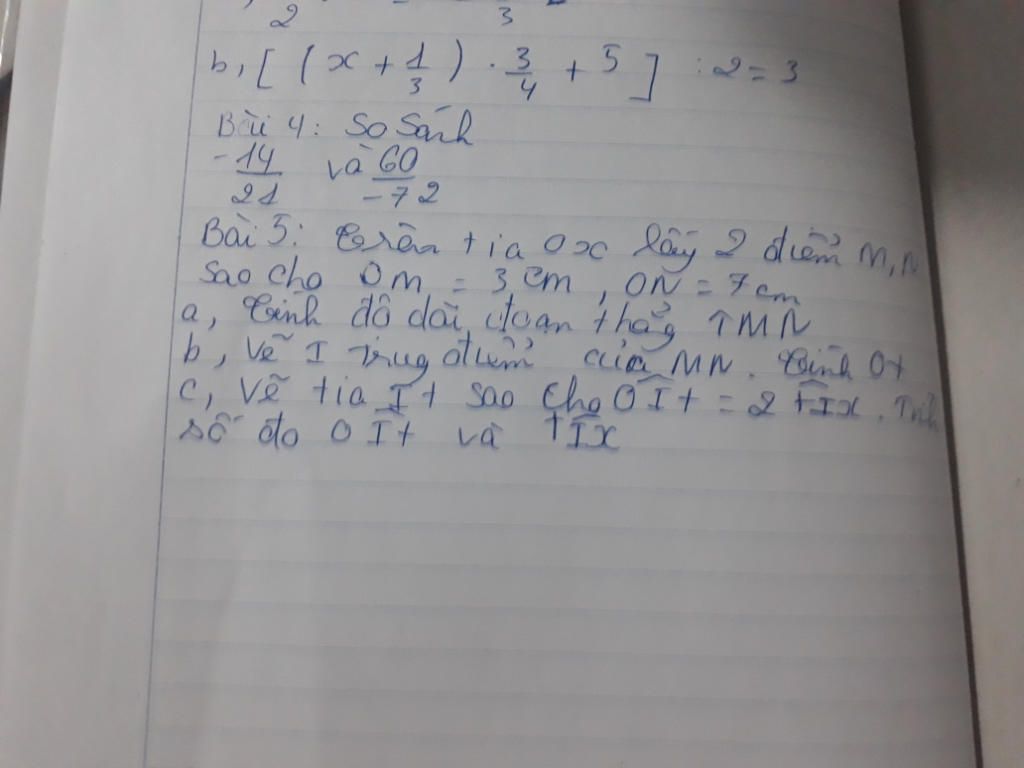 2 3
b, [ ( x + 1/3 ) . 3/4 + 5 ] : 2 = 3
Bài 4: So Sánh
-14/21 và 60/-72
Bài 5: Trên tia Ox lấy 2 điểm M, N
sao cho OM = 3 cm, ON = 7 cm
a, Tính độ dài đoạn thẳg MN
b, Vẽ I trug điểm của MN. Tính
c, Vẽ tia It sao cho OÎt = 2 tÎx. Tính
số đo OÎt và tÎx